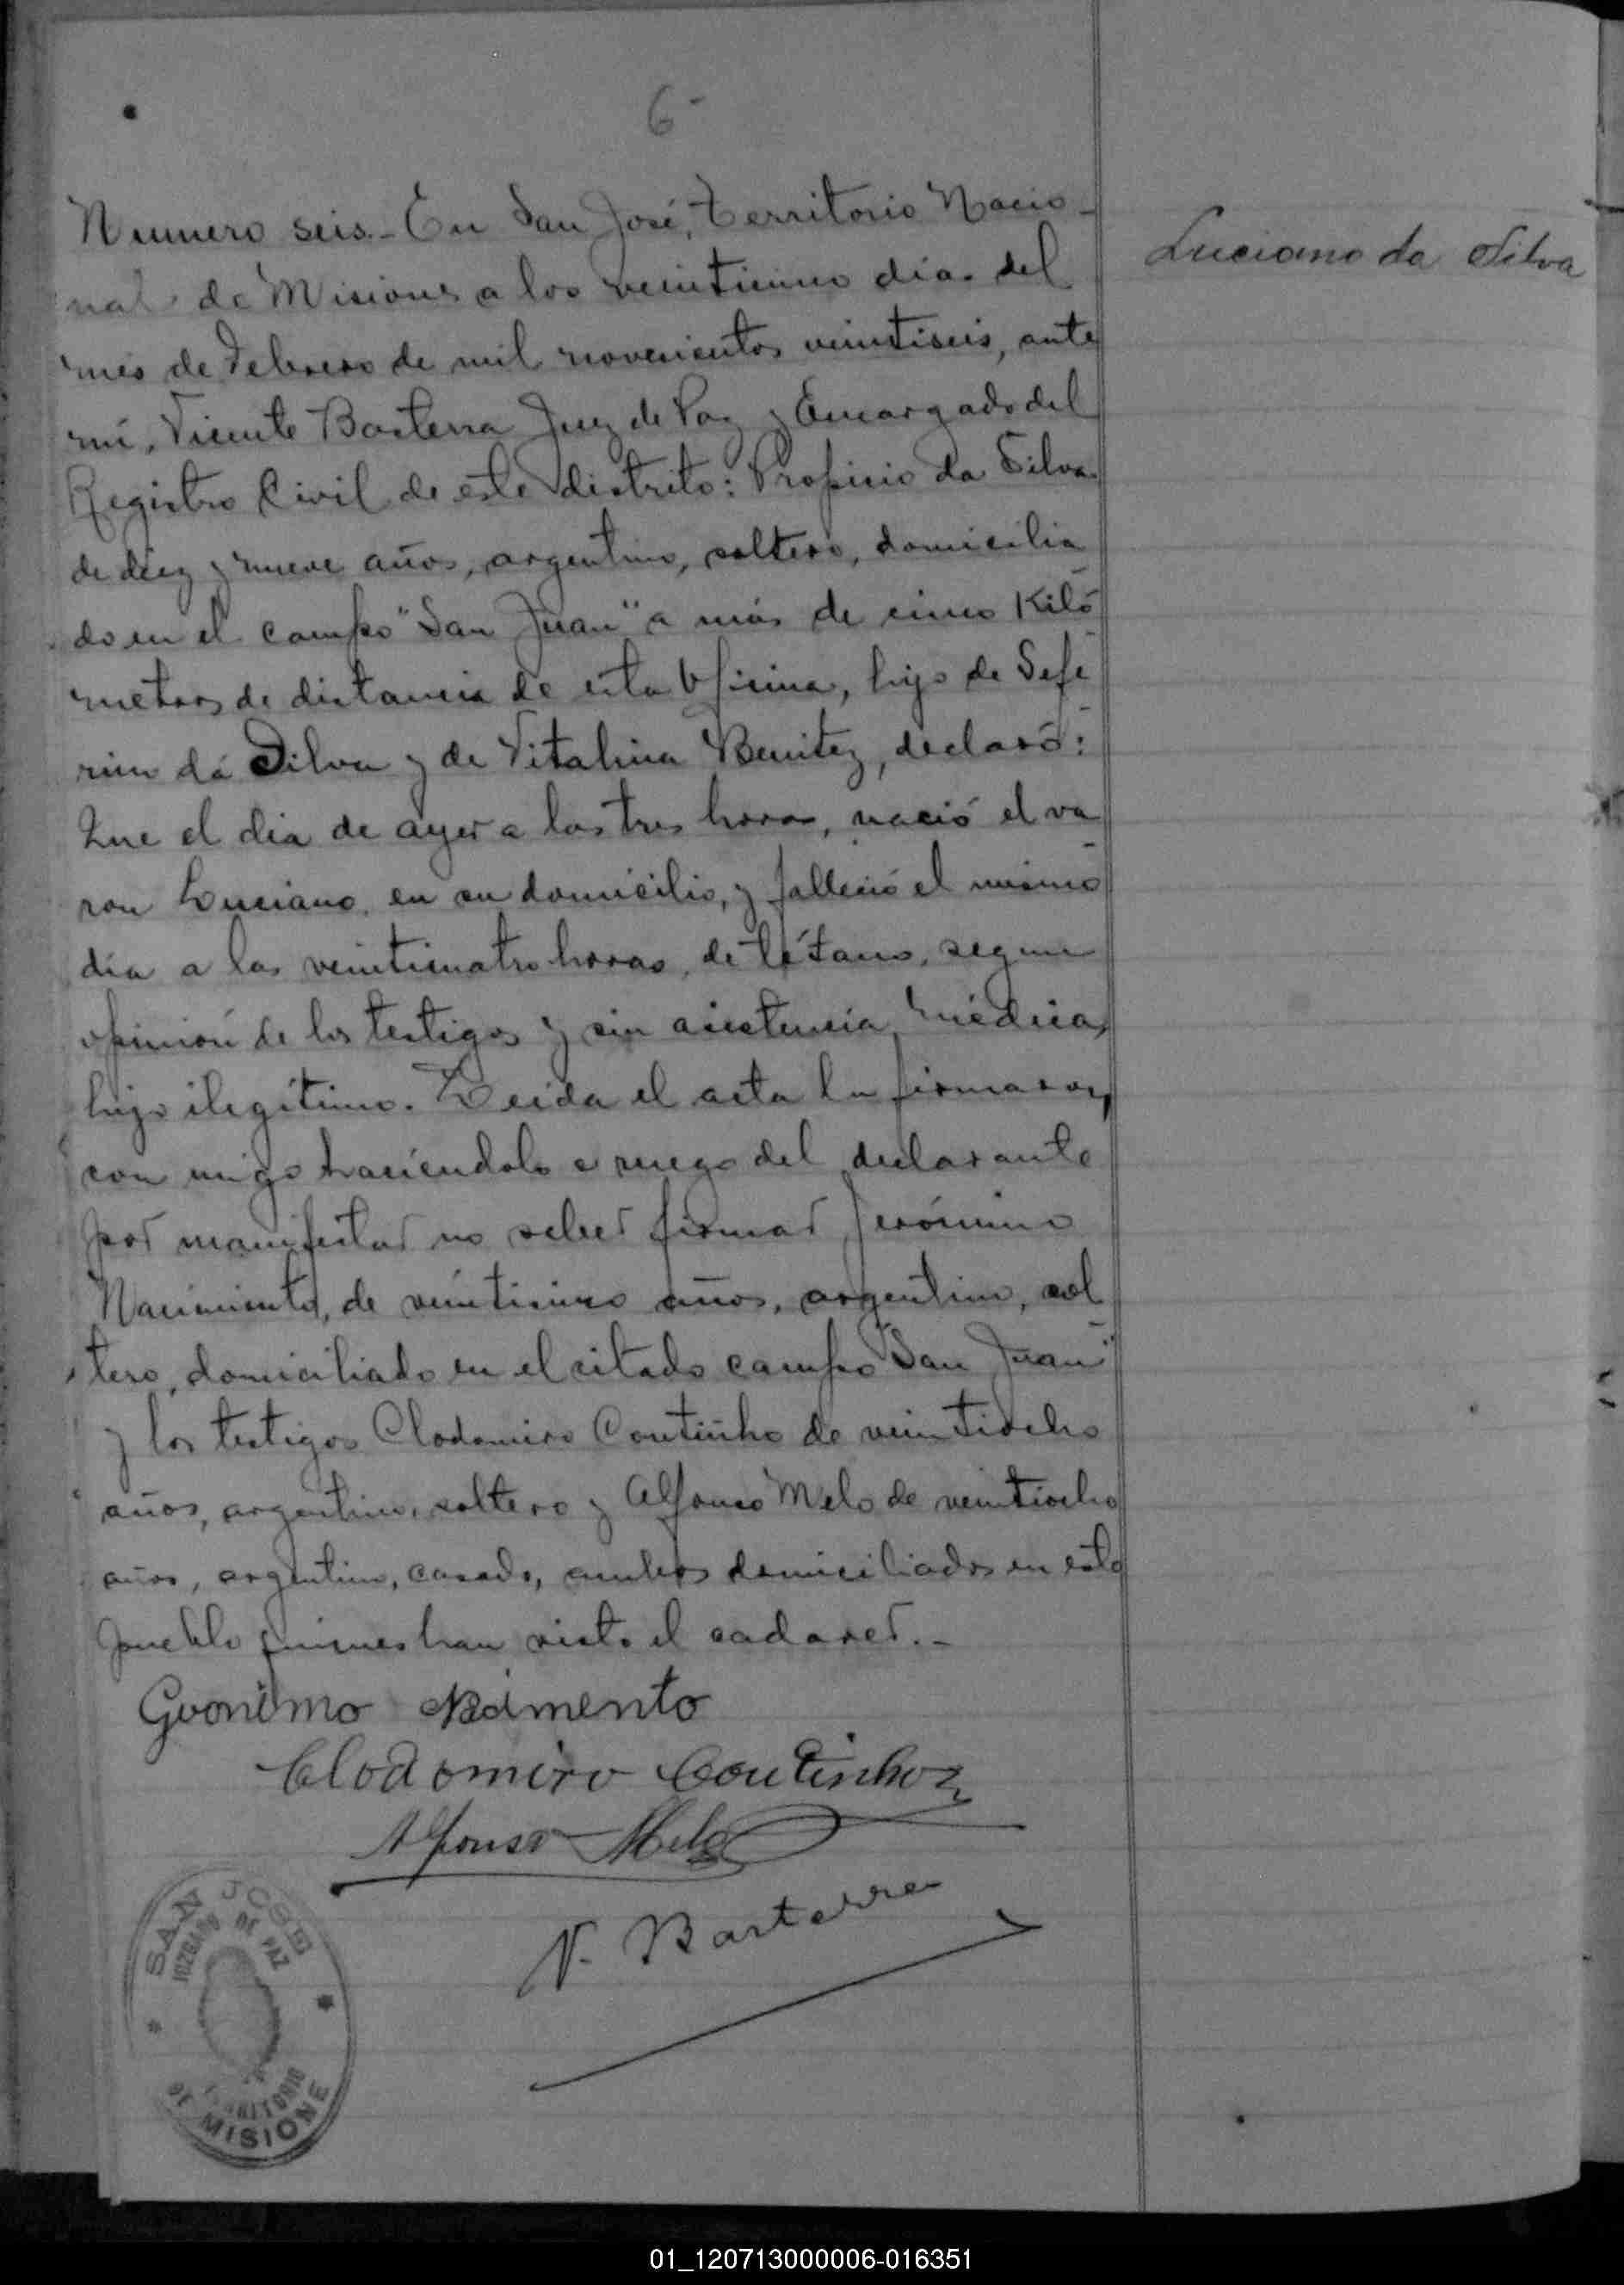 6-
Numero seis.- En San José, Territorio Nacio-
nal de Misiones a los veinticinco días del
mes de Febrero de mil novecientos veintiseis, ante
mí, Vicente Basterra Juez de Paz y Encargado del
Registro Civil de este distrito: Proficio da Silva
de diez y nueve años, argentino, soltero, domicilia-
do en el campo "San Juan" a más de cinco Kiló-
metros de distancia de esta Oficina, hijo de Sefe-
rino da Silva y de Vitalina Benitez, declaró:
Que el dia de ayer a las tres horas, nació el va-
ron Luciano, en su domicilio, y falleció el mismo
día a las veinticuatro horas, de tétano, segun
opinión de los testigos y sin asistencia médica,
hijo ilegítimo. Leida el acta la firmaron
con migo haciéndolo a ruego del declarante
por manifestar no saber firmar Jerónimo
Nacimiento, de veinticinco años, argentino, sol-
tero, domiciliado en el citado campo "San Juan"
y los testigos Clodomiro Coutinho de veintiocho
años, argentino, soltero y Alfonso Melo de veintiocho
años, argentino, casado, ambos domiciliados en este
pueblo quienes han visto el cadaver.-
Luciano da Silva
Geronimo
Clodomiro Coutinho
Alfonso Melo
V. Basterra
SAN JOSE
JUZGADO DE PAZ
TERRITORIO
DE MISIONE
01_120713000006-016351